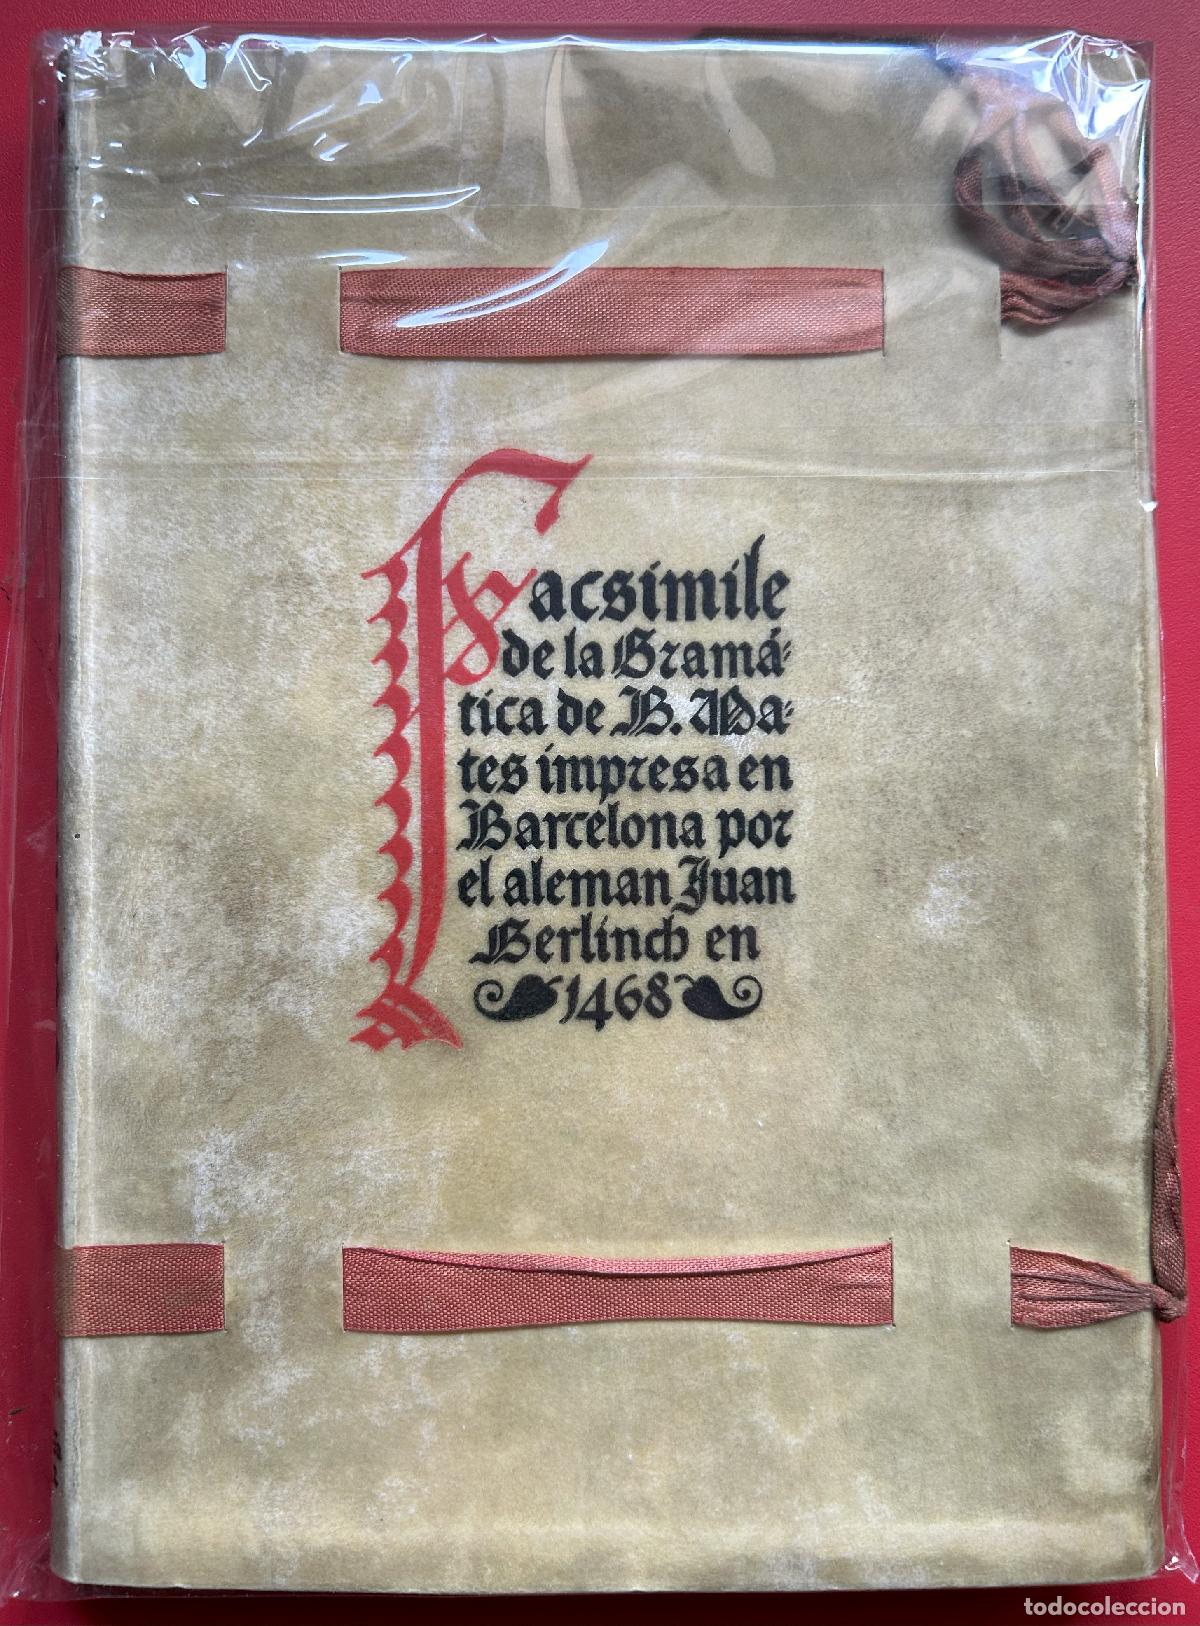 Facsimile
de la Gramá-
tica de B. Ma-
tes impresa en
Barcelona por
el aleman Juan
Gerlinch en
1468
todocoleccion